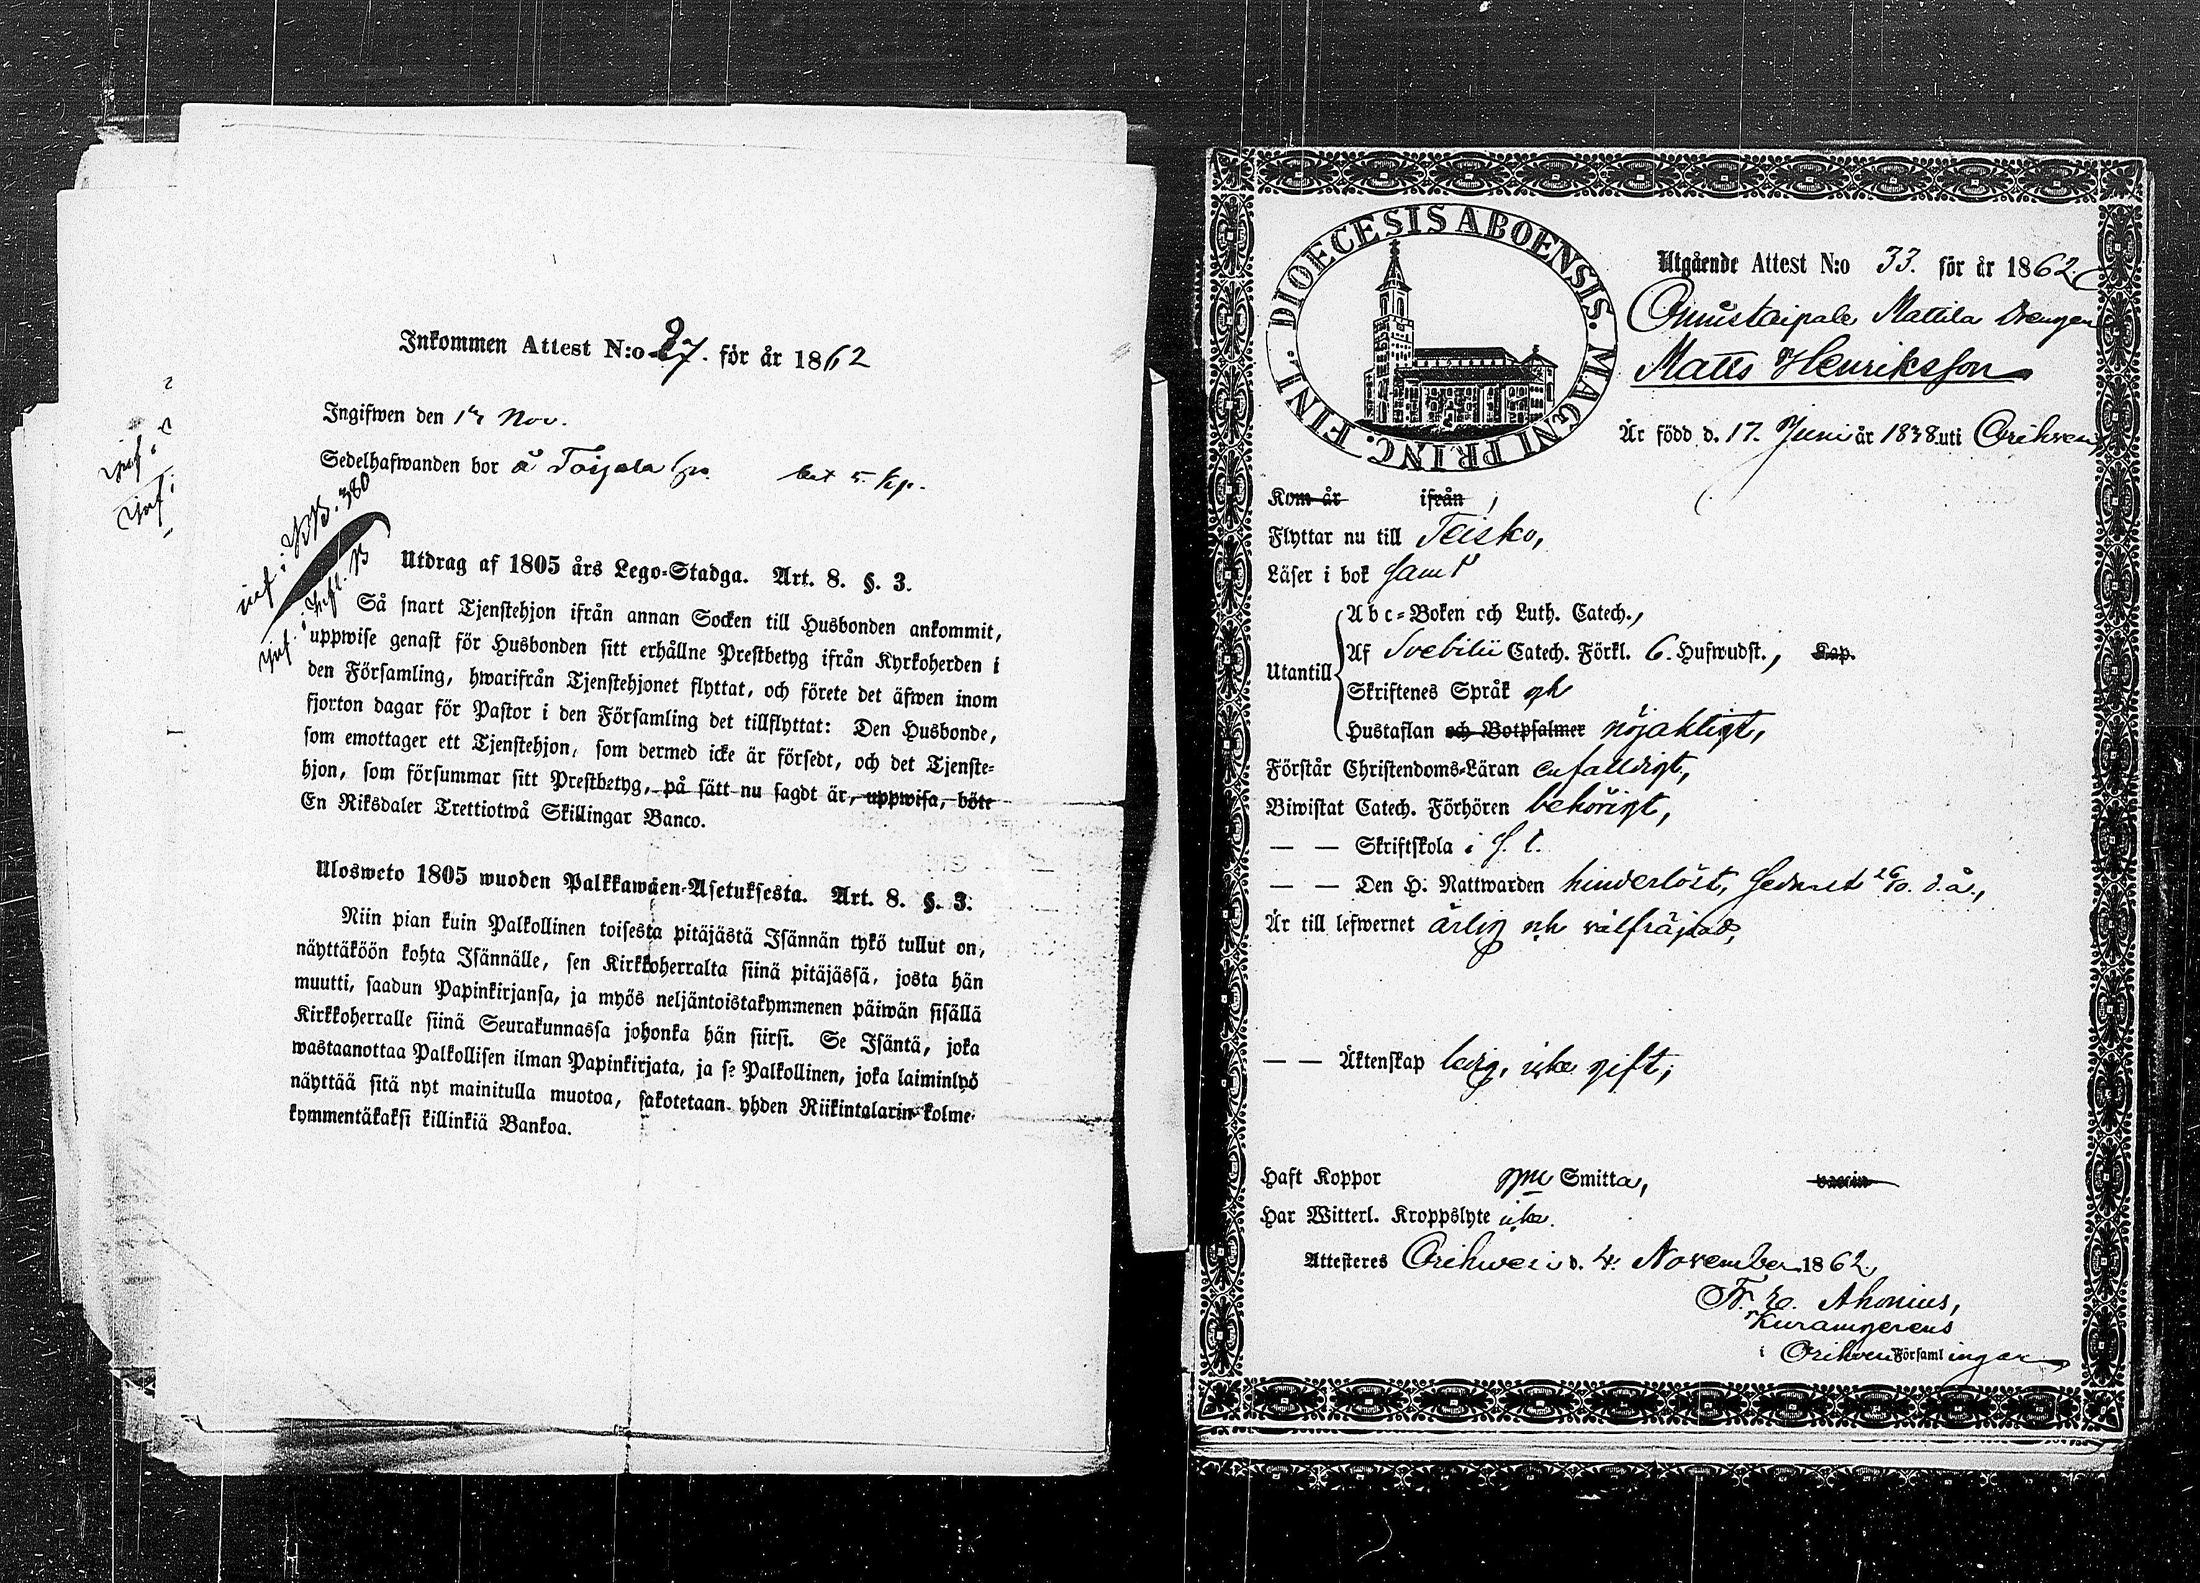 Inkommen Attest N:o 27. för år 1862
Ingifwen den 1 Nov.
Sedelhafwanden bor å Toijala
inf: KB. 380
inf: Infl. B
Utdrag af 1805 års Lego-Stadga. Art. 8. §. 3.
Så snart Tjenstehjon ifrån annan Socken till Husbonden ankommit,
uppwise genast för Husbonden sitt erhållne Prestbetyg ifrån Kyrkoherden i
den Församling, hwarifrån Tjenstehjonet flyttat, och förete det äfwen inom
fjorton dagar för Pastor i den Församling det tillflyttat: Den Husbonde,
som emottager ett Tjenstehjon, som dermed icke är försedt, och det Tjenste-
hjon, som försummar sitt Prestbetyg, på sätt nu sagdt är, uppwisa, böte
En Riksdaler Trettiotwå Skillingar Banco.
Ulosweto 1805 wuoden Palkkawäen-Asetuksesta. Art. 8. §. 3.
Niin pian kuin Palkollinen toisesta pitäjästä Isännän tykö tullut on,
näyttäköön kohta Isännälle, sen Kirkkoherralta siinä pitäjässä, josta hän
muutti, saadun Papinkirjansa, ja myös neljäntoistakymmenen päiwän sisällä
Kirkkoherralle siinä Seurakunnassa johonka hän siirsi. Se Isäntä, joka
wastaanottaa Palkollisen ilman Papinkirjata, ja se Palkollinen, joka laiminlyö
näyttää sitä nyt mainitulla muotoa, sakotetaan yhden Riikintalarin kolme-
kymmentäkaksi killinkiä Bankoa.
DIOECESIS ABOENSIS. MAGNI PRINC. FINL.
Utgående Attest N:o 33. för år 1862.
Onnistaipale Mattila Drengen
Matts Henriksson
Är född d. 17. Juni år 1838 uti Orihvesi
Kom år ifrån
Flyttar nu till Teisko,
Läser i bok samt
Utantill
Abc-Boken och Luth. Catech.,
Af Svebilii Catech. Förkl. 6. Hufwudst., Kap.
Skriftenes Språk och
Hustaflan och Botpsalmer nöjaktigt,
Förstår Christendoms-Läran enfalldigt,
Biwistat Catech. Förhören behörigt,
— — Skriftskola i s. t.
— — Den H. Nattwarden hinderlöst, sednast 26/10. d. å.,
Är till lefwernet ärlig och välfräjdad,
— — Äktenskap ledig, icke gift,
Haft Koppor gm Smitta, vaccin
Har Witterl. Kroppslyte icke.
Attesteras Orihwesi d. 4. November 1862.
Fr. E. Ahonius,
Kuramgerens
i Orihvesi Församlingar